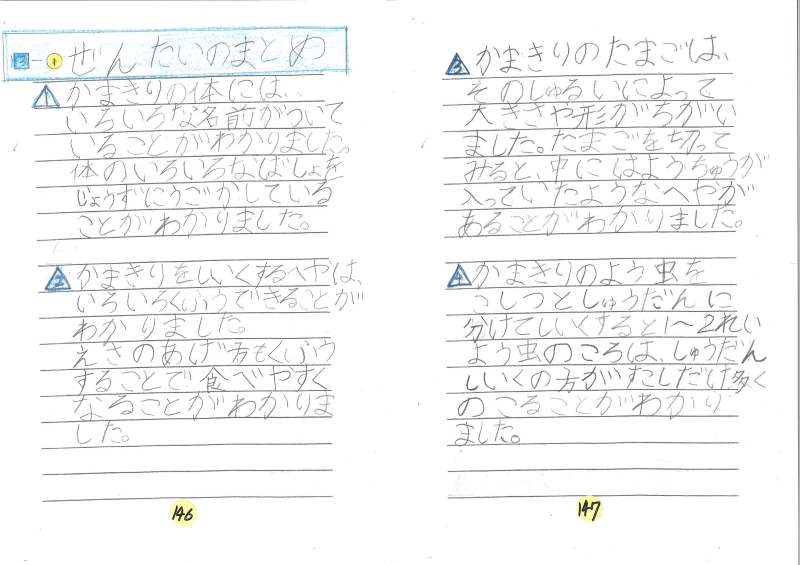 3-1 ぜんたいのまとめ
1 かまきりの体には、
いろいろな名前がついて
いることがわかりました。
体のいろいろなばしょを
じょうずにうごかしている
ことがわかりました。
2 かまきりをしいくするへやは、
いろいろくふうできることが
わかりました。
えさのあげ方もくふう
することで食べやすく
なることがわかりま
した。
146
3 かまきりのたまごは、
そのしゅるいによって
大きさや形がちがい
ました。たまごを切って
みると、中にはようちゅうが
入っていたようなへやが
あることがわかりました。
4 かまきりのよう虫を
こしつとしゅうだんに
分けてしいくすると1〜2れい
よう虫のころは、しゅうだん
しいくの方がすこしだけ多く
のこることがわかり
ました。
147